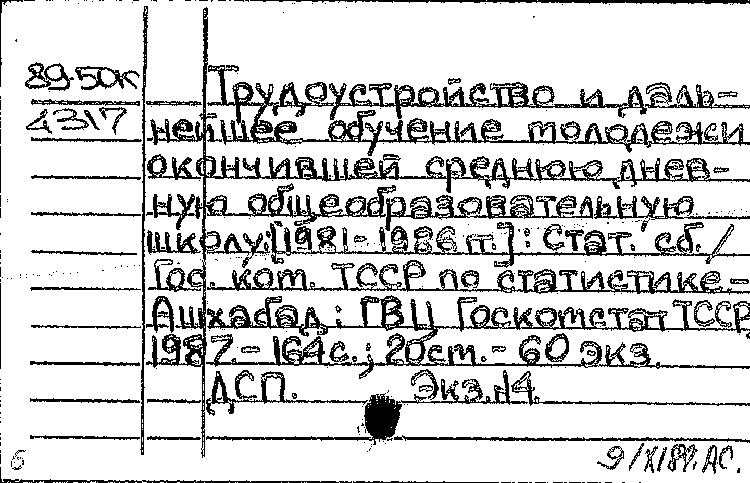 89-50к
4317
Трудоустройство и даль-
нейшее обучение молодежи
окончившей среднюю днев-
ную общеобразовательную
школу:[1981-1986 гг.]: Стат. сб./
Гос. ком. ТССР по статистике.-
Ашхабад: ГВЦ Госкомстат ТССР,
1987.-164с.; 20см.-60 экз.
ДСП. Экз.№4.
6
9/XI 89. АС.